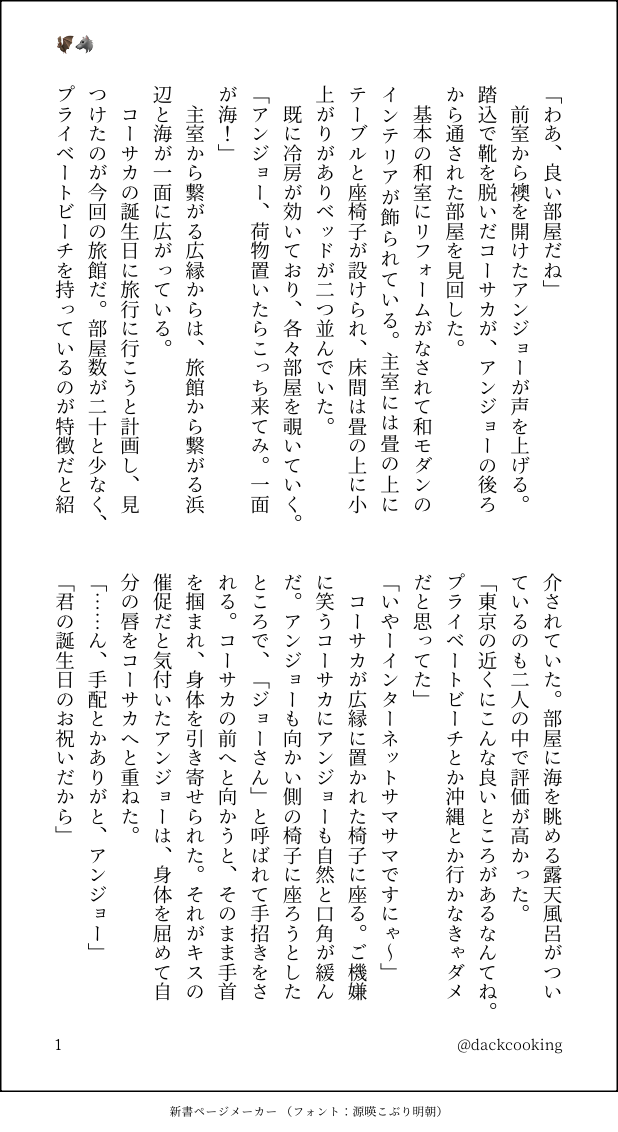 「わあ、良い部屋だね」
　前室から襖を開けたアンジョーが声を上げる。
踏込で靴を脱いだコーサカが、アンジョーの後ろ
から通された部屋を見回した。
　基本の和室にリフォームがなされて和モダンの
インテリアが飾られている。主室には畳の上に
テーブルと座椅子が設けられ、床間は畳の上に小
上がりがありベッドが二つ並んでいた。
　既に冷房が効いており、各々部屋を覗いていく。
「アンジョー、荷物置いたらこっち来てみ。一面
が海！」
　主室から繋がる広縁からは、旅館から繋がる浜
辺と海が一面に広がっている。
　コーサカの誕生日に旅行に行こうと計画し、見
つけたのが今回の旅館だ。部屋数が二十と少なく、
プライベートビーチを持っているのが特徴だと紹
介されていた。部屋に海を眺める露天風呂がつい
ているのも二人の中で評価が高かった。
「東京の近くにこんな良いところがあるなんてね。
プライベートビーチとか沖縄とか行かなきゃダメ
だと思ってた」
「いやーインターネットサマサマですにゃ～」
　コーサカが広縁に置かれた椅子に座る。ご機嫌
に笑うコーサカにアンジョーも自然と口角が緩ん
だ。アンジョーも向かい側の椅子に座ろうとした
ところで、「ジョーさん」と呼ばれて手招きをさ
れる。コーサカの前へと向かうと、そのまま手首
を掴まれ、身体を引き寄せられた。それがキスの
催促だと気付いたアンジョーは、身体を屈めて自
分の唇をコーサカへと重ねた。
「……ん、手配とかありがと、アンジョー」
「君の誕生日のお祝いだから」
1
@dackcooking
新書ページメーカー（フォント：源暎こぶり明朝）